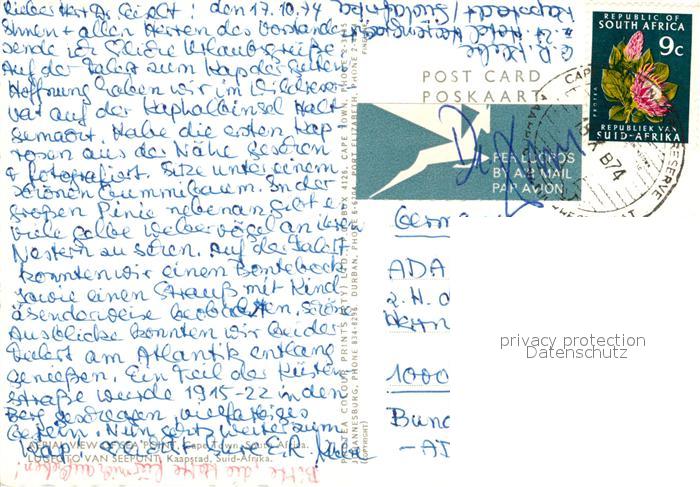 Lieber Herr Dr. den 17.10.74
Ihnen + allen Herren des Vorstandes
sende ich Urlaubsgrüße
Auf der Fahrt zum Kap der Guten
Hoffnung haben wir im Wildreser-
vat auf der Kaphalbinsel Halt
gemacht. Habe die ersten Kap
rosen aus der Nähe gesehen
& fotografiert. Sitze unter einem
schönen Gummibaum. In der
großen Pinie nebenan gibt es
viele gelbe Webervögel an ihren
Nestern zu sehen. Auf der Fahrt
konnten wir einen Bontebock
sowie einen Strauß mit Kind
beobachten, schöne
Ausblicke konnten wir bei der
Fahrt am Atlantik entlang
genießen. Ein Teil der Küsten-
straße wurde 1915-22 in den
Berg geschlagen, vielfarbiges
Gestein. Nun geht's weiter zum
Kap. Herzlichst Eure E.R.
AERIAL VIEW OF SEA POINT, Cape Town, South Africa.
LUGFOTO VAN SEEPUNT, Kaapstad, Suid-Afrika.
Bitte, die Karte für mich aufheben!
E. R.
z. Zt. Hotel
Kapstadt/Südafrika
PROTEA COLOUR PRINTS (PTY) LTD., BOX 4126, CAPE TOWN, PHONE
JOHANNESBURG, PHONE 834-8296 DURBAN, PHONE PORT ELIZABETH, PHONE
(COPYRIGHT)
POST CARD
POSKAART
PER LUGPOS
BY AIR MAIL
PAR AVION
REPUBLIC OF
SOUTH AFRICA
9c
PROTEA
REPUBLIEK VAN
SUID-AFRIKA
RESERVE
X 874
Germ
ADA
z. H. d
Herrn
1000
Bund
– AD
privacy protection
Datenschutz